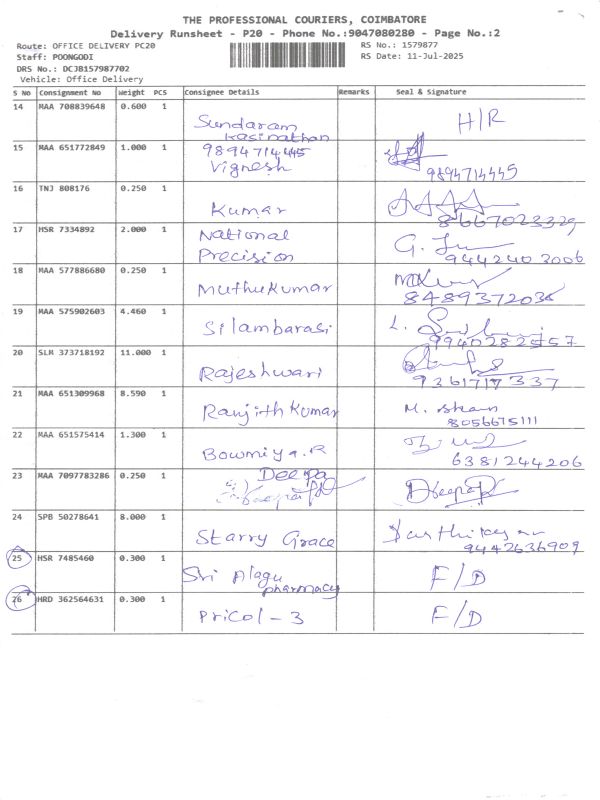 THE PROFESSIONAL COURIERS, COIMBATORE
Delivery Runsheet - P20 - Phone No.:9047080280 - Page No.:2
Route: OFFICE DELIVERY PC20
RS No.: 1579877
Staff: POONGODI
RS Date: 11-Jul-2025
DRS No.: DCJB157987702
Vehicle: Office Delivery
S No Consignment No Weight PCS Consignee Details Remarks Seal & Signature
14 MAA 708839648 0.600 1
Sundaram H/R
Kasinathan
15 MAA 651772849 1.000 1
9894714445
Vignesh 9894714445
16 TNJ 808176 0.250 1
Kumar 8667023329
17 HSR 7334892 2.000 1
National G.
Precision 9442403006
18 MAA 577886680 0.250 1
Muthukumar 8489372036
19 MAA 575902603 4.460 1
Silambarasi L.
9940282557
20 SLM 373718192 11.000 1
Rajeshwari 9361717337
21 MAA 651309968 8.590 1
Ranjith Kumar M.
8056675111
22 MAA 651575414 1.300 1
Bowmiya.R 6381244206
23 MAA 7097783286 0.250 1
Deepa Deepa
24 SPB 50278641 8.000 1
Starry Grace Karthikeyan
9442636909
25 HSR 7485460 0.300 1
Sri Alagu F/D
pharmacy
26 HRD 362564631 0.300 1
Pricol - 3 F/D